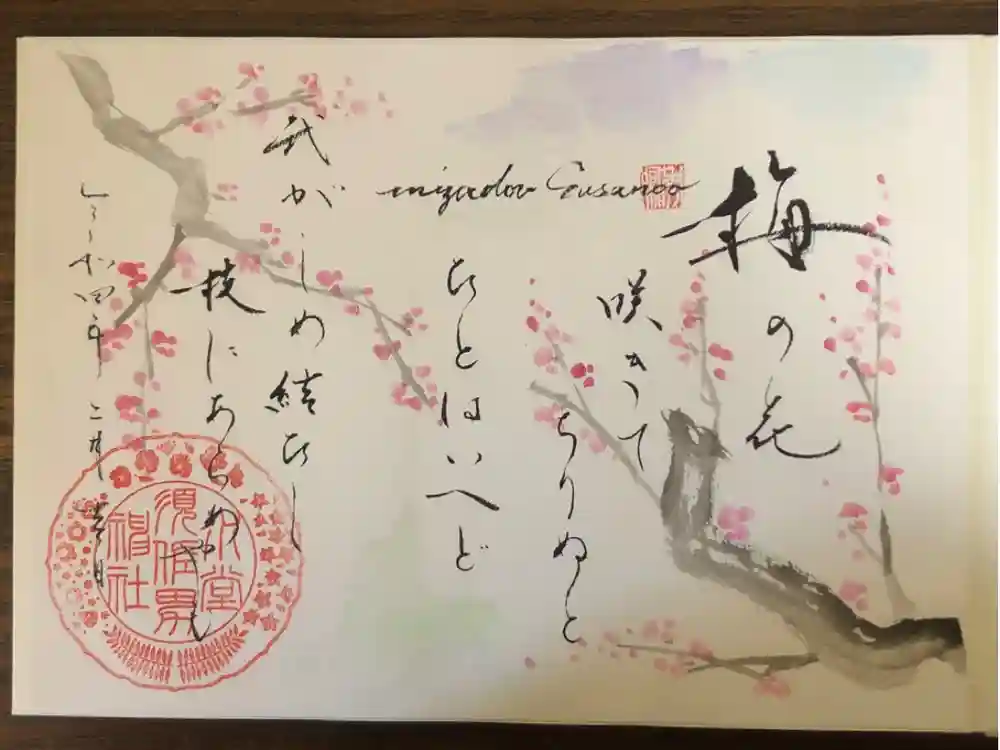 梅の花
咲きて
ちりぬと
ひとはいへど
mizudou Susanoo
我が
しめ結ひし
枝にあらめやも
和四年 二月 日
水堂
須佐男
神社